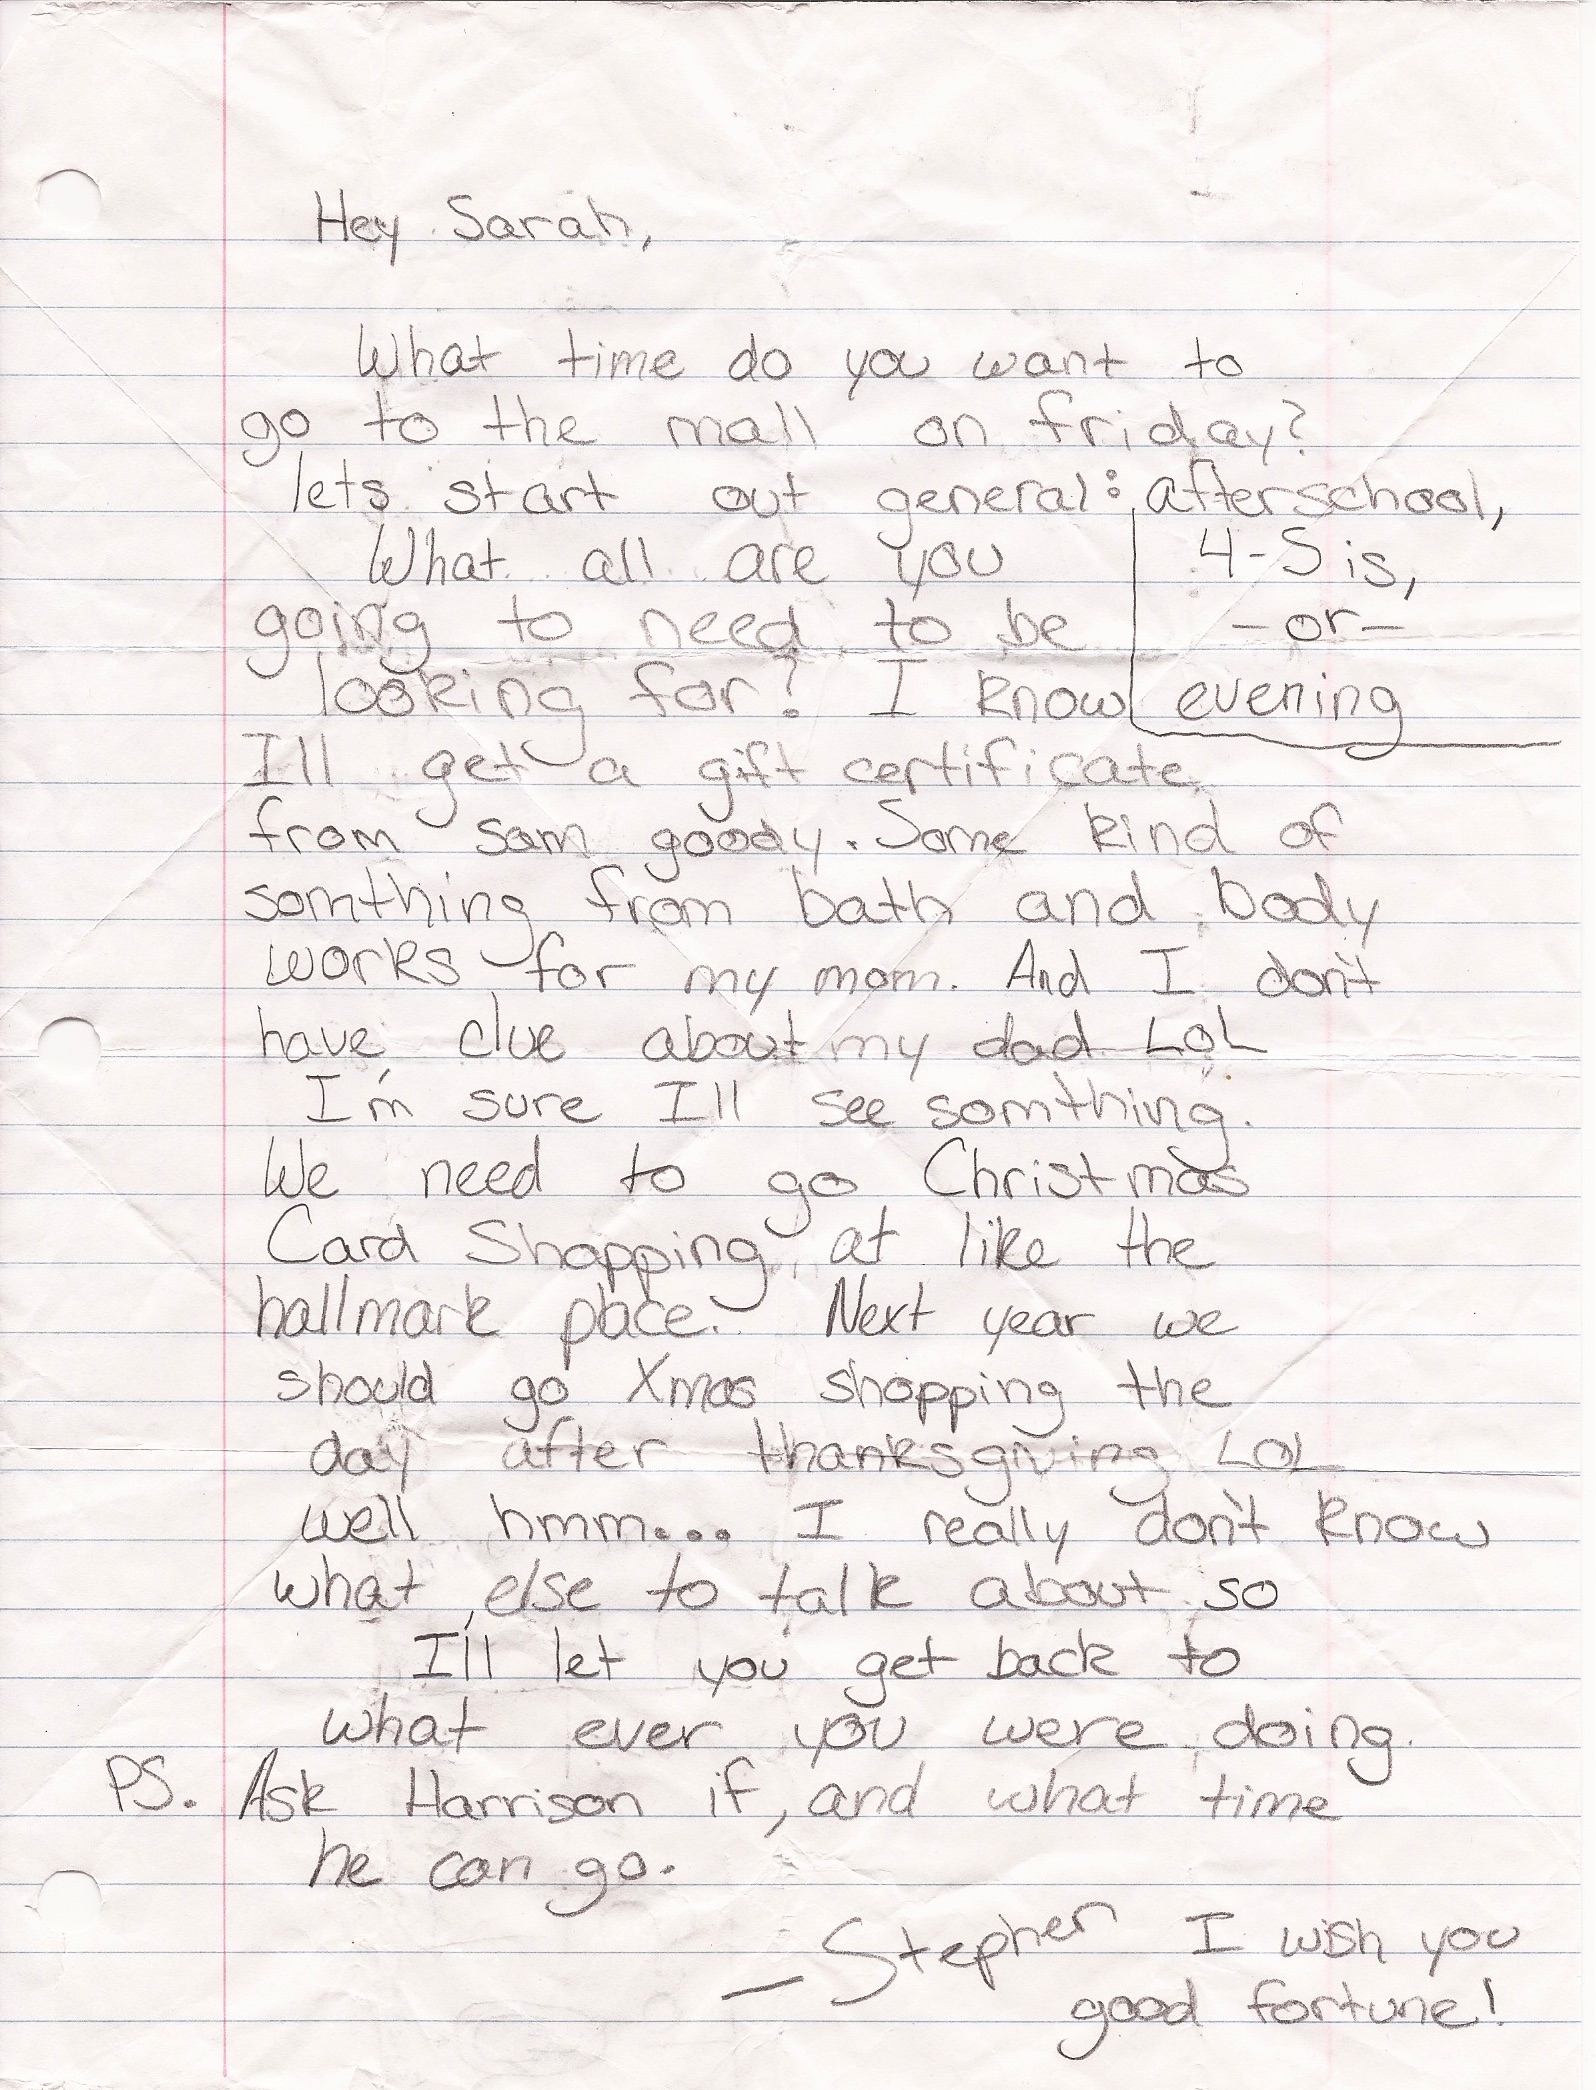 Hey Sarah,
What time do you want to
go to the mall on friday?
lets start out general: afterschool,
4-5is,
-or-
evening
What all are you
going to need to be
looking for? I know
I'll get a gift certificate
from sam goody. Some kind of
somthing from bath and body
works for my mom. And I don't
have clue about my dad LOL
I'm sure Ill see somthing.
We need to go Christmas
Card Shopping at like the
hallmark place. Next year we
should go Xmas shopping the
day after thanksgiving LOL
well hmm... I really don't know
what else to talk about so
I'll let you get back to
what ever you were doing.
PS. Ask Harrison if, and what time
he can go.
—Stephen I wish you
good fortune!